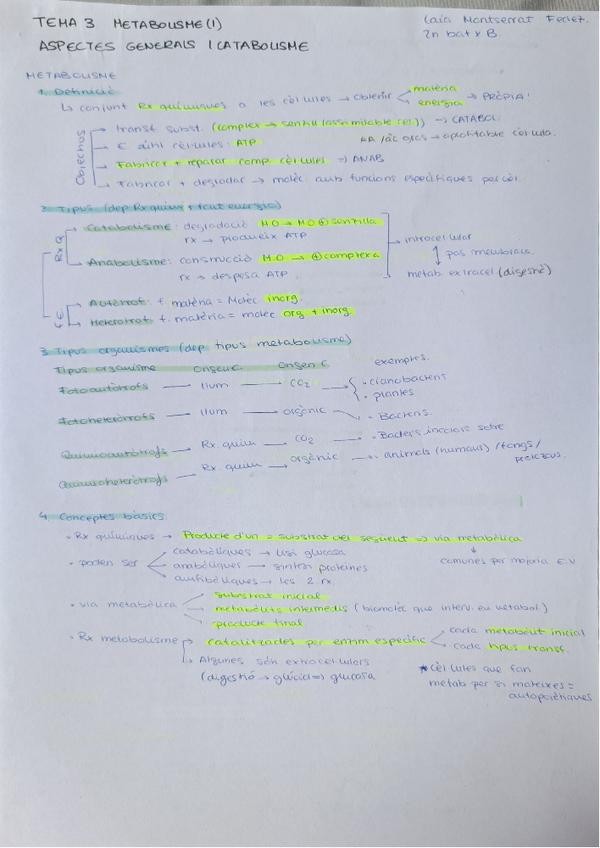 TEMA 3 METABOLISME (1)
ASPECTES GENERALS I CATABOLISME
Laia Montserrat
2n batx B.
METABOLISME
1. Definició
↳ conjunt Rx químiques a les cèl·lules → obtenir < matèria energia → PRÒPIA
Objectius
transf subst. (complex → senzill (assimilable cel.)) → CATABOL.
E a/in cèl·lules: ATP
Fabricar + reparar comp. cèl·lules → ANAB
Fabricar + degradar → molèc amb funcions específiques per cèl.
2. Tipus (dep Rx quim + font energia)
Rx Q
Catabolisme: degradació M.O → M.O ⊕ senzilla
rx → produeix ATP
Anabolisme: construcció M.O → ⊕ complexa
rx → despesa ATP
intracel·lular
↕ pas membrana
metab extracel (digestió)
Autòtrof: f. matèria = Molèc inorg.
Heteròtrof: f. matèria = molèc org + inorg.
3. Tipus organismes (dep. tipus metabolisme)
Tipus organisme origen E origen C exemples.
Fotoautòtrofs — llum → CO2 · cianobacteris · plantes
Fotoheteròtrofs — llum → orgànic · Bacteris.
Quimioautòtrofs → Rx. quim → CO2 → · Bacteris incolors sofre
Quimioheteròtrofs → Rx. quim → orgànic → · animals (humans) / fongs / protozous.
4. Conceptes bàsics
· Rx químiques → Producte d'un = substrat del següent → via metabòlica
↓
comunes per majoria E.V
· poden ser
catabòliques → lisi glucosa
anabòliques → síntesi proteïnes
amfibòliques → les 2 rx.
· via metabòlica
substrat inicial
metabòlits intermedis (biomolèc que interv. en metabol)
producte final
· Rx metabolisme → catalitzades per enzim específic < cada metabòlit inicial
cada tipus transf.
Algunes són extracel·lulars
(digestió → glúcid → glucosa
* Cèl·lules que fan
metab per si mateixes =
autopoiètiques